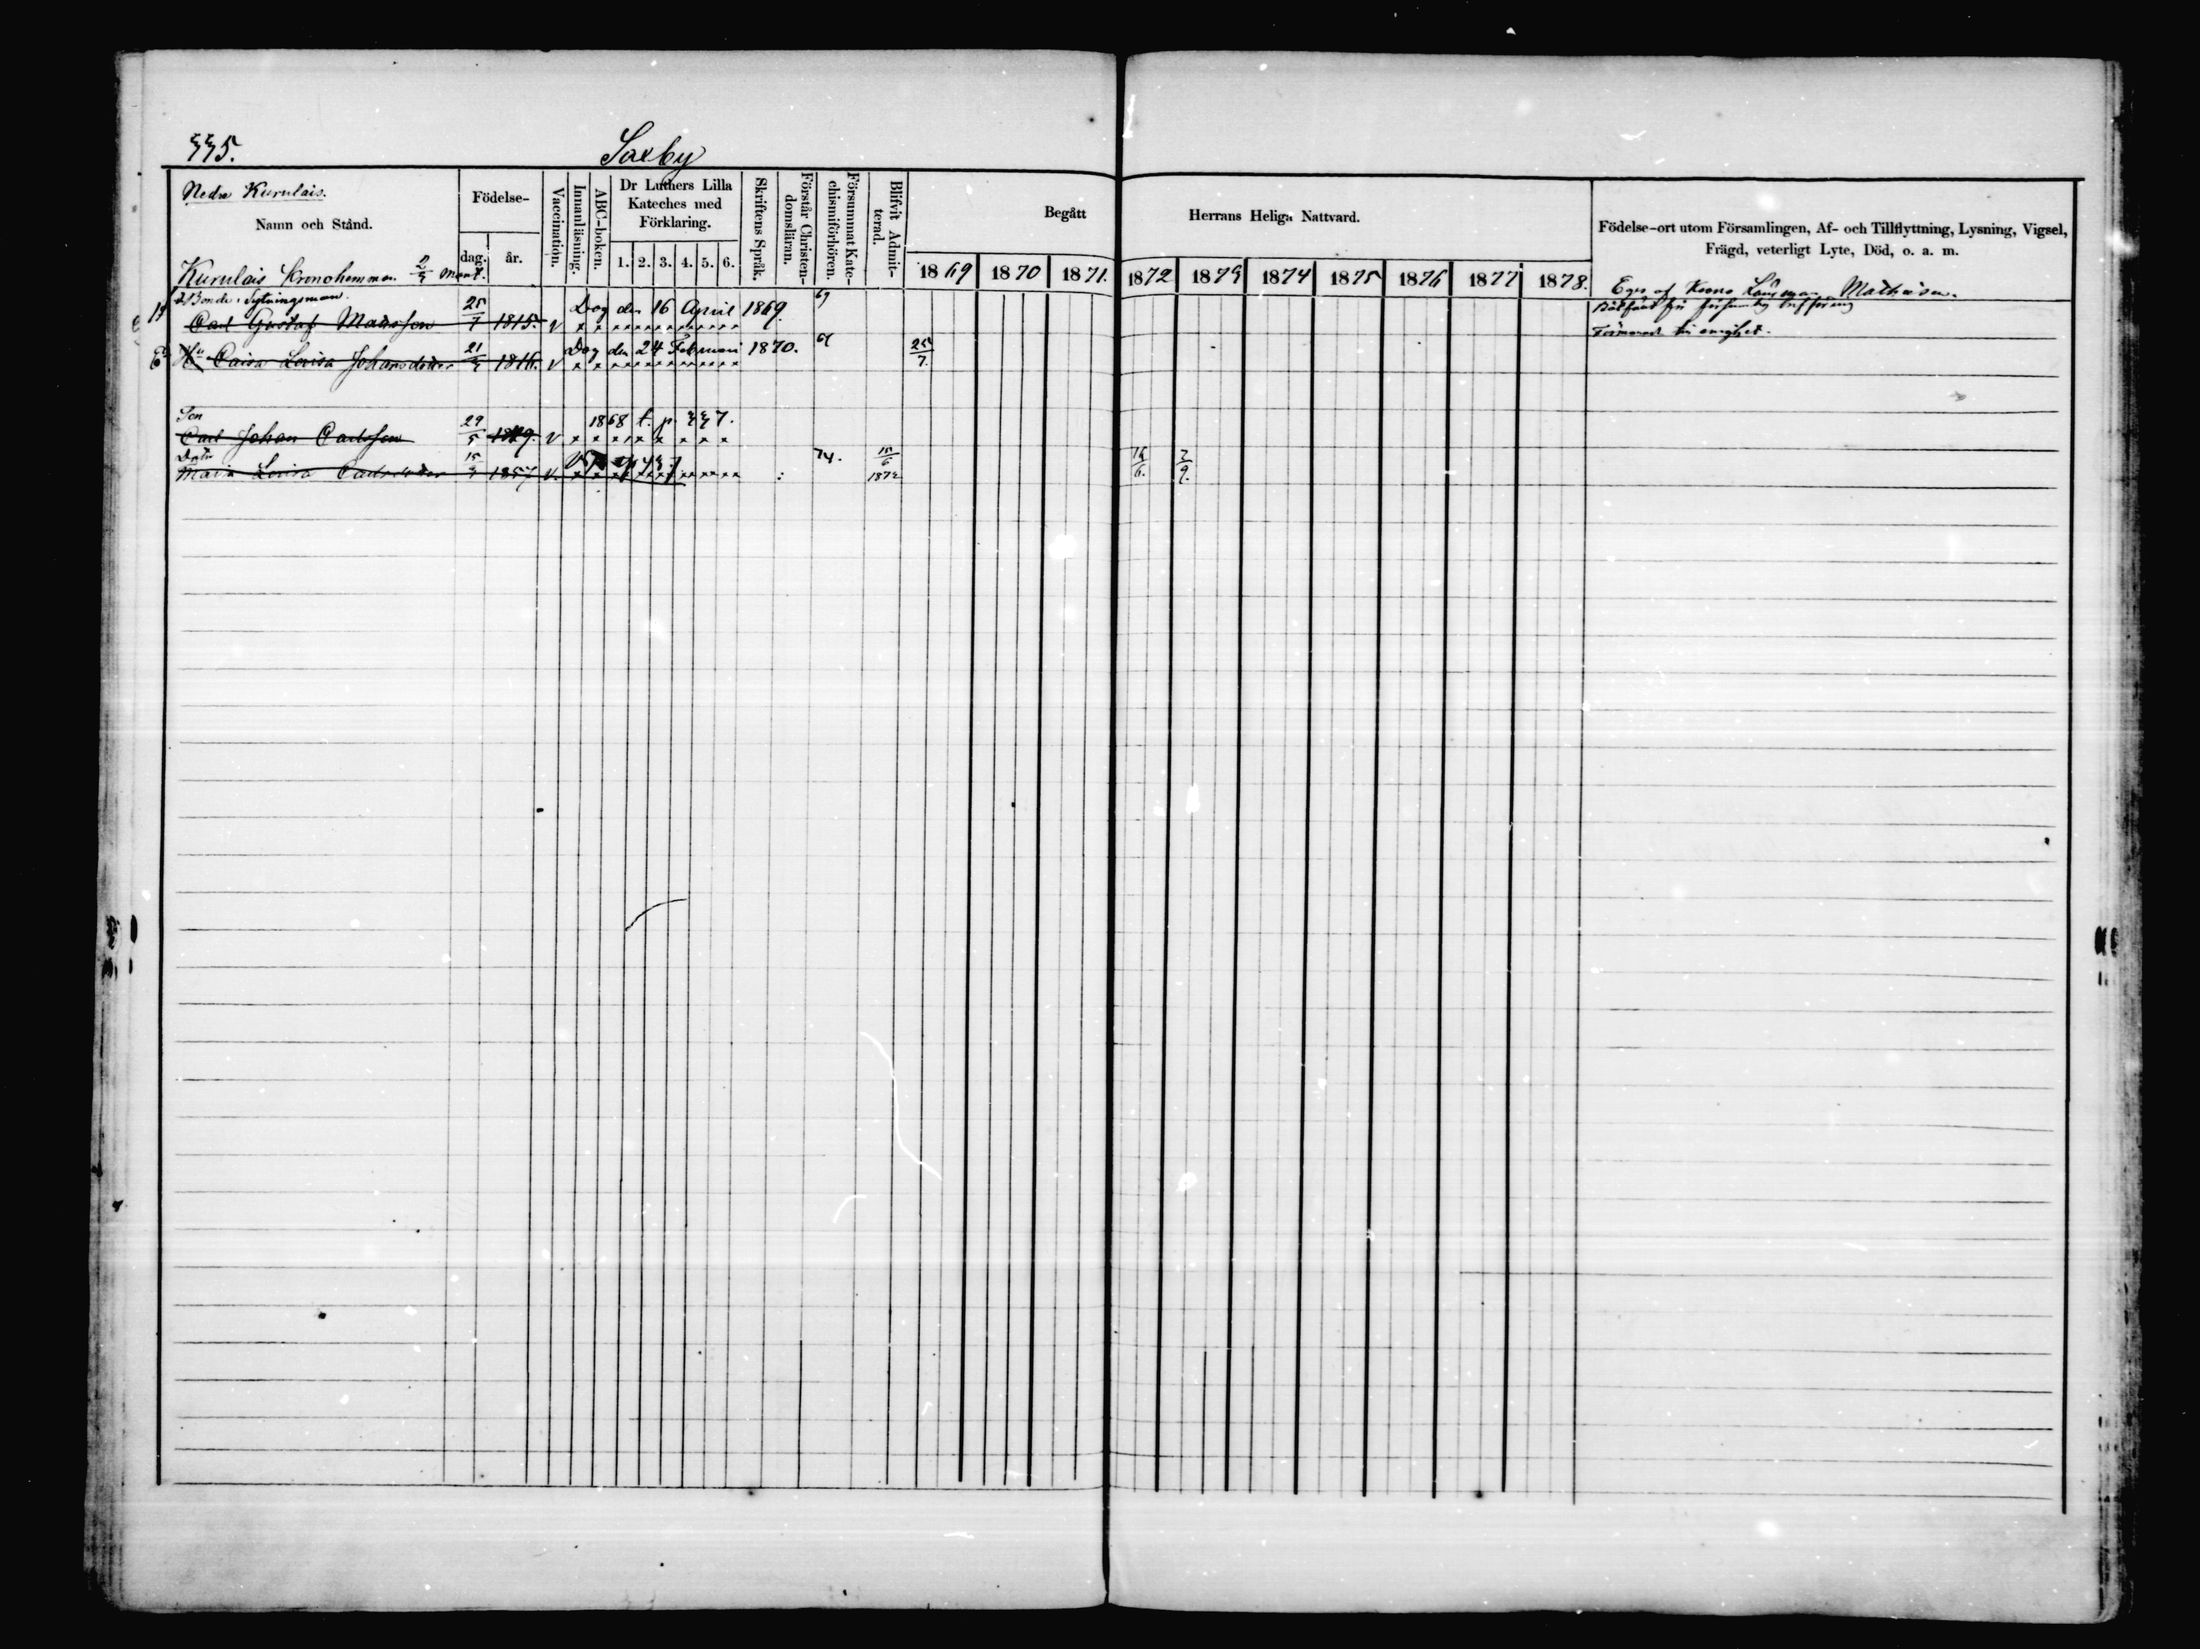 335.
Saxby
Nedre Kurulais.
Namn och Stånd.
Födelse-
dag. år.
Vaccination.
Innanläsning.
ABC-boken.
Dr Luthers Lilla
Kateches med
Förklaring.
1. 2. 3. 4. 5. 6.
Skriftens Språk.
Förstår Christen-
domsläran.
Försummat Kate-
chismiförhören.
Blifvit Admit-
terad.
Begått Herrans Heliga Nattvard.
1869 1870 1871. 1872 1873 1874 1875 1876 1877 1878.
Födelse-ort utom Församlingen, Af- och Tillflyttning, Lysning, Vigsel,
Frägd, veterligt Lyte, Död, o. a. m.
Kurulais Kronohemman 2/3 Mant.
Eges af Krono Länsman Mathisen.
Bonde, Sytningsman
Carl Gustaf Madsson 25/7 1815. v Dog den 16 April 1869. 69
enighet.
Hu Caisa Lovisa Johansdotter 21/3 1816. v Dog den 24 Februari 1870. 25/7.
Son
Carl Johan Carlsson 29/5 1849. v 1868 t. p. 337.
Dotr
Maria Lovisa Carlsdotter 15/3 1857 v. 74. 15/6 1872 16/6. 7/9.